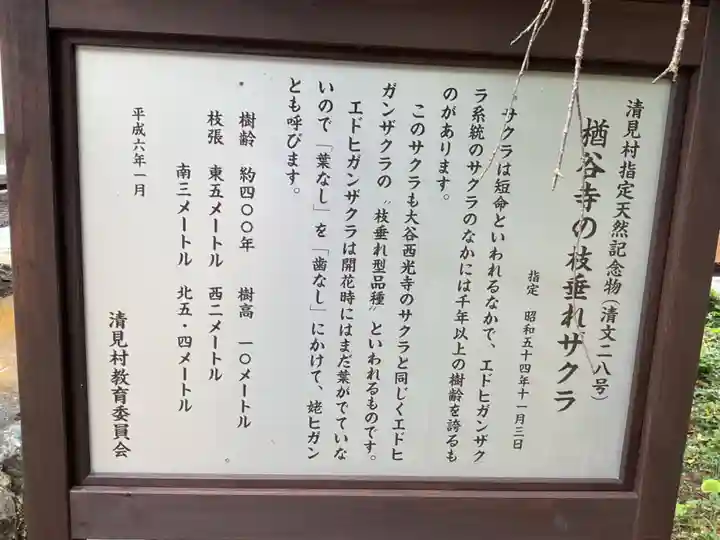 清見村指定天然記念物(清文二八号)
楢谷寺の枝垂れザクラ
指定 昭和五十四年十一月三日
サクラは短命といわれるなかで、エドヒガンザク
ラ系統のサクラのなかには千年以上の樹齢を誇るも
のがあります。
このサクラも大谷西光寺のサクラと同じくエドヒ
ガンザクラの〝枝垂れ型品種〟といわれるものです。
エドヒガンザクラは開花時にはまだ葉がでていな
いので「葉なし」を「歯なし」にかけて、姥ヒガン
とも呼びます。
樹齢 約四〇〇年 樹高 一〇メートル
枝張 東五メートル 西二メートル
南三メートル 北五・四メートル
平成六年一月
清見村教育委員会